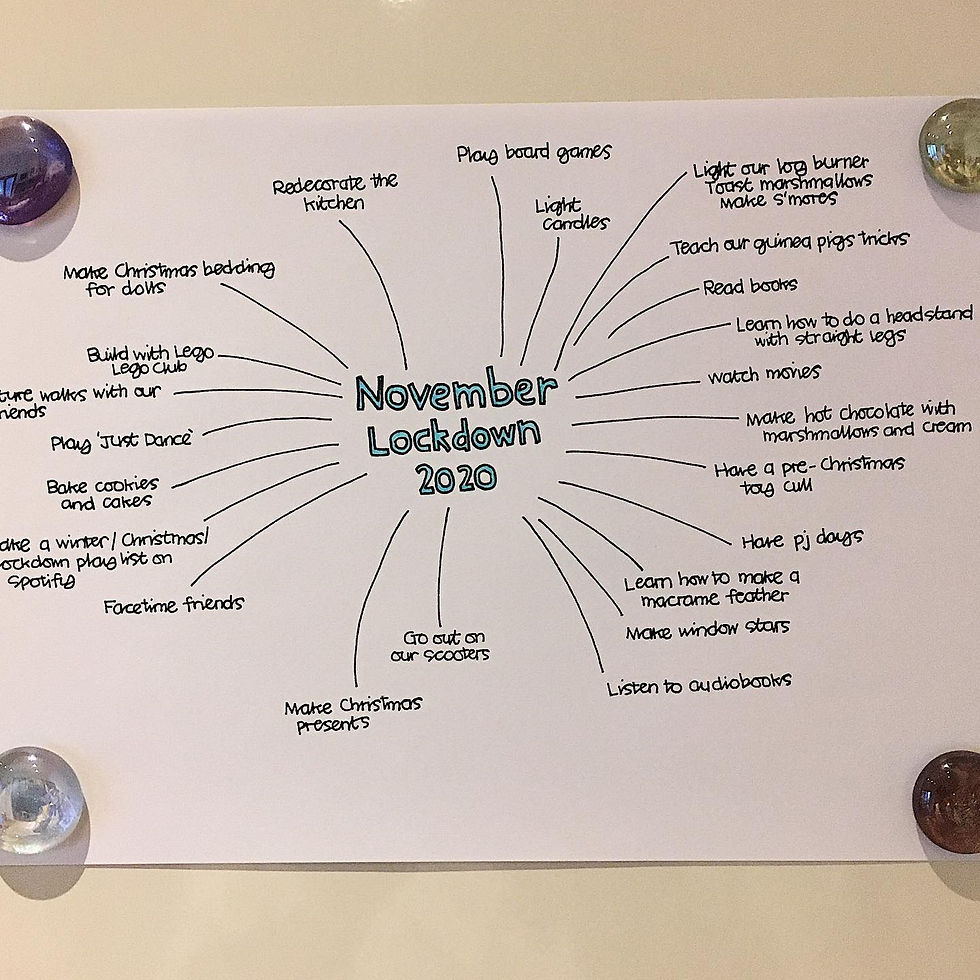 November
Lockdown
2020
Play board games
Light
candles
Light our log burner
Toast marshmallows
Make s'mores
Teach our guinea pigs tricks
Read books
Learn how to do a headstand
with straight legs
Watch movies
Make hot chocolate with
marshmallows and cream
Have a pre-Christmas
toy cull
Have pj days
Learn how to make a
macrame feather
Make window stars
Listen to audiobooks
Go out on
our scooters
Make Christmas
presents
Facetime friends
a winter/Christmas/
playlist on
Spotify
Bake cookies
and cakes
Play 'Just Dance'
walks with our
Build with Lego
Lego Club
Make Christmas bedding
for dolls
Redecorate the
kitchen